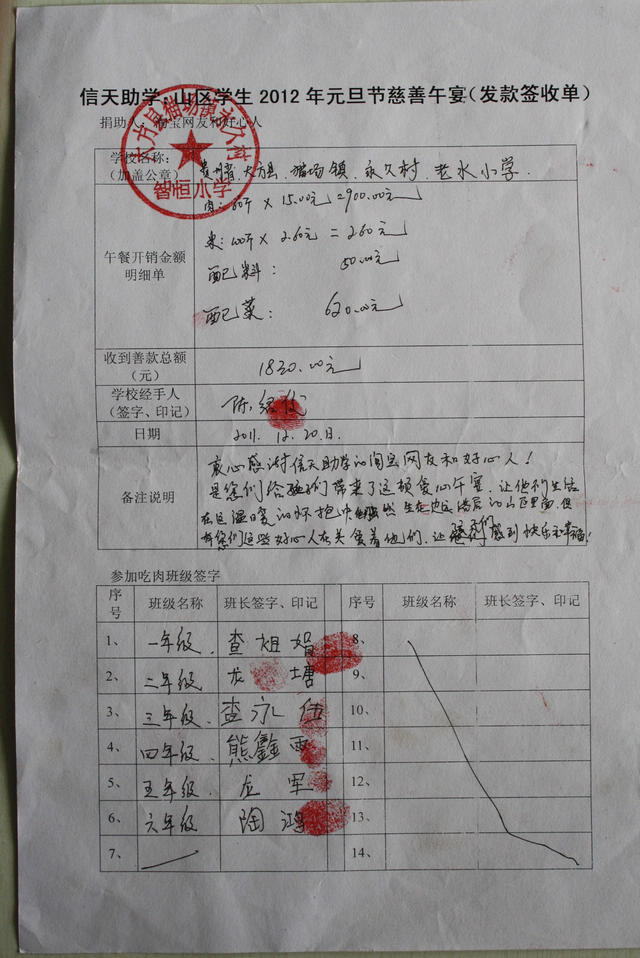 信天助学：山区学生 2012 年元旦节慈善午宴（发款签收单）
捐助人：淘宝网友和好心人
大方县猫场镇永久村
智恒小学
学校名称：（加盖公章） 贵州省，大方县，猫场镇，永久村，老水小学．
午餐开销金额明细单
肉：60斤 × 15.00元=900.00元
米：100斤 × 2.60元 = 260元
配料： 50.00元
配菜： 620.00元
收到善款总额（元） 1830.00元
学校经手人（签字、印记） 陈
日期 2011. 12. 20.日.
备注说明
衷心感谢信天助学的淘宝网友和好心人！
是您们给孩子们带来了这顿爱心午宴．让他们生活
在这温暖的怀抱中 生在边区落后的山区里面．但
有您们这些好心人在关爱着他们．让孩子们感到快乐和幸福！
参加吃肉班级签字
序号 班级名称 班长签字、印记 序号 班级名称 班长签字、印记
1、 一年级． 查姐娟 8、
2、 二年级 龙 塘 9、
3、 三年级． 查永伍 10、
4、 四年级 熊鑫雨 11、
5、 五年级． 龙军 12、
6、 六年级 陶鸿 13、
7、 14、